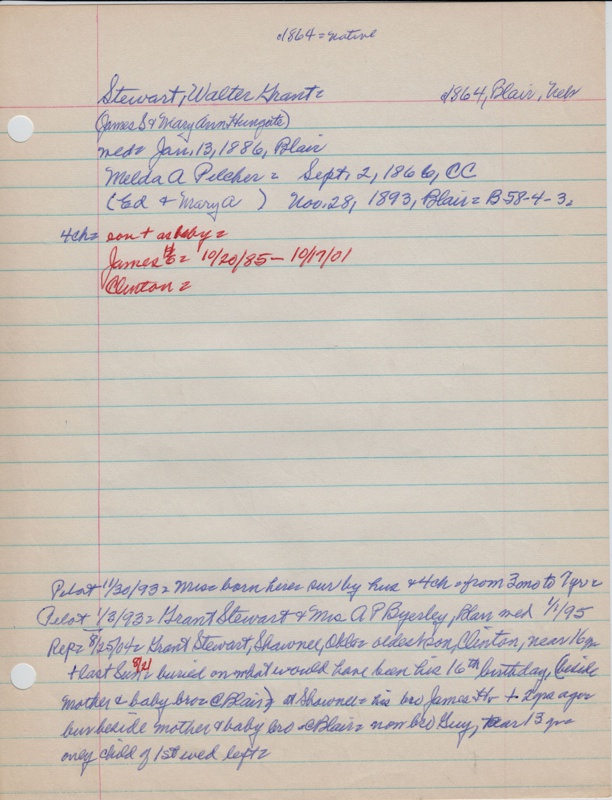 c1864 = native
Stewart, Walter Grant = c1864, Blair, Nebr
(James S & Mary Ann Hungate)
med = Jan. 13, 1886, Blair
Melda A Pilcher = Sept. 2, 1866, CC
(Ed & Mary A ) Nov. 28, 1893, Blair = B 58-4-3.
4ch = son + as baby =
James = 10/20/85 - 10/17/01
Clinton =
Pilot 11/30/93 = Mrs = born here = sur by hus & 4ch = from 3mo to 7yr =
Pilot 1/3/93 = Grant Stewart & Mrs A P Byerley, Blair med 1/1/95
Rep = 8/25/04 = Grant Stewart, Shawnee, Okla = oldest son, Clinton, near 16 yr
+ last Sun 8/21 buried on what would have been his 16th birthday, (beside
mother & baby bro = C Blair) at Shawnee = his bro James + 2 yrs ago =
bur beside mother & baby bro = C Blair = now bro Guy, near 13 yr =
only child of 1st wed left =